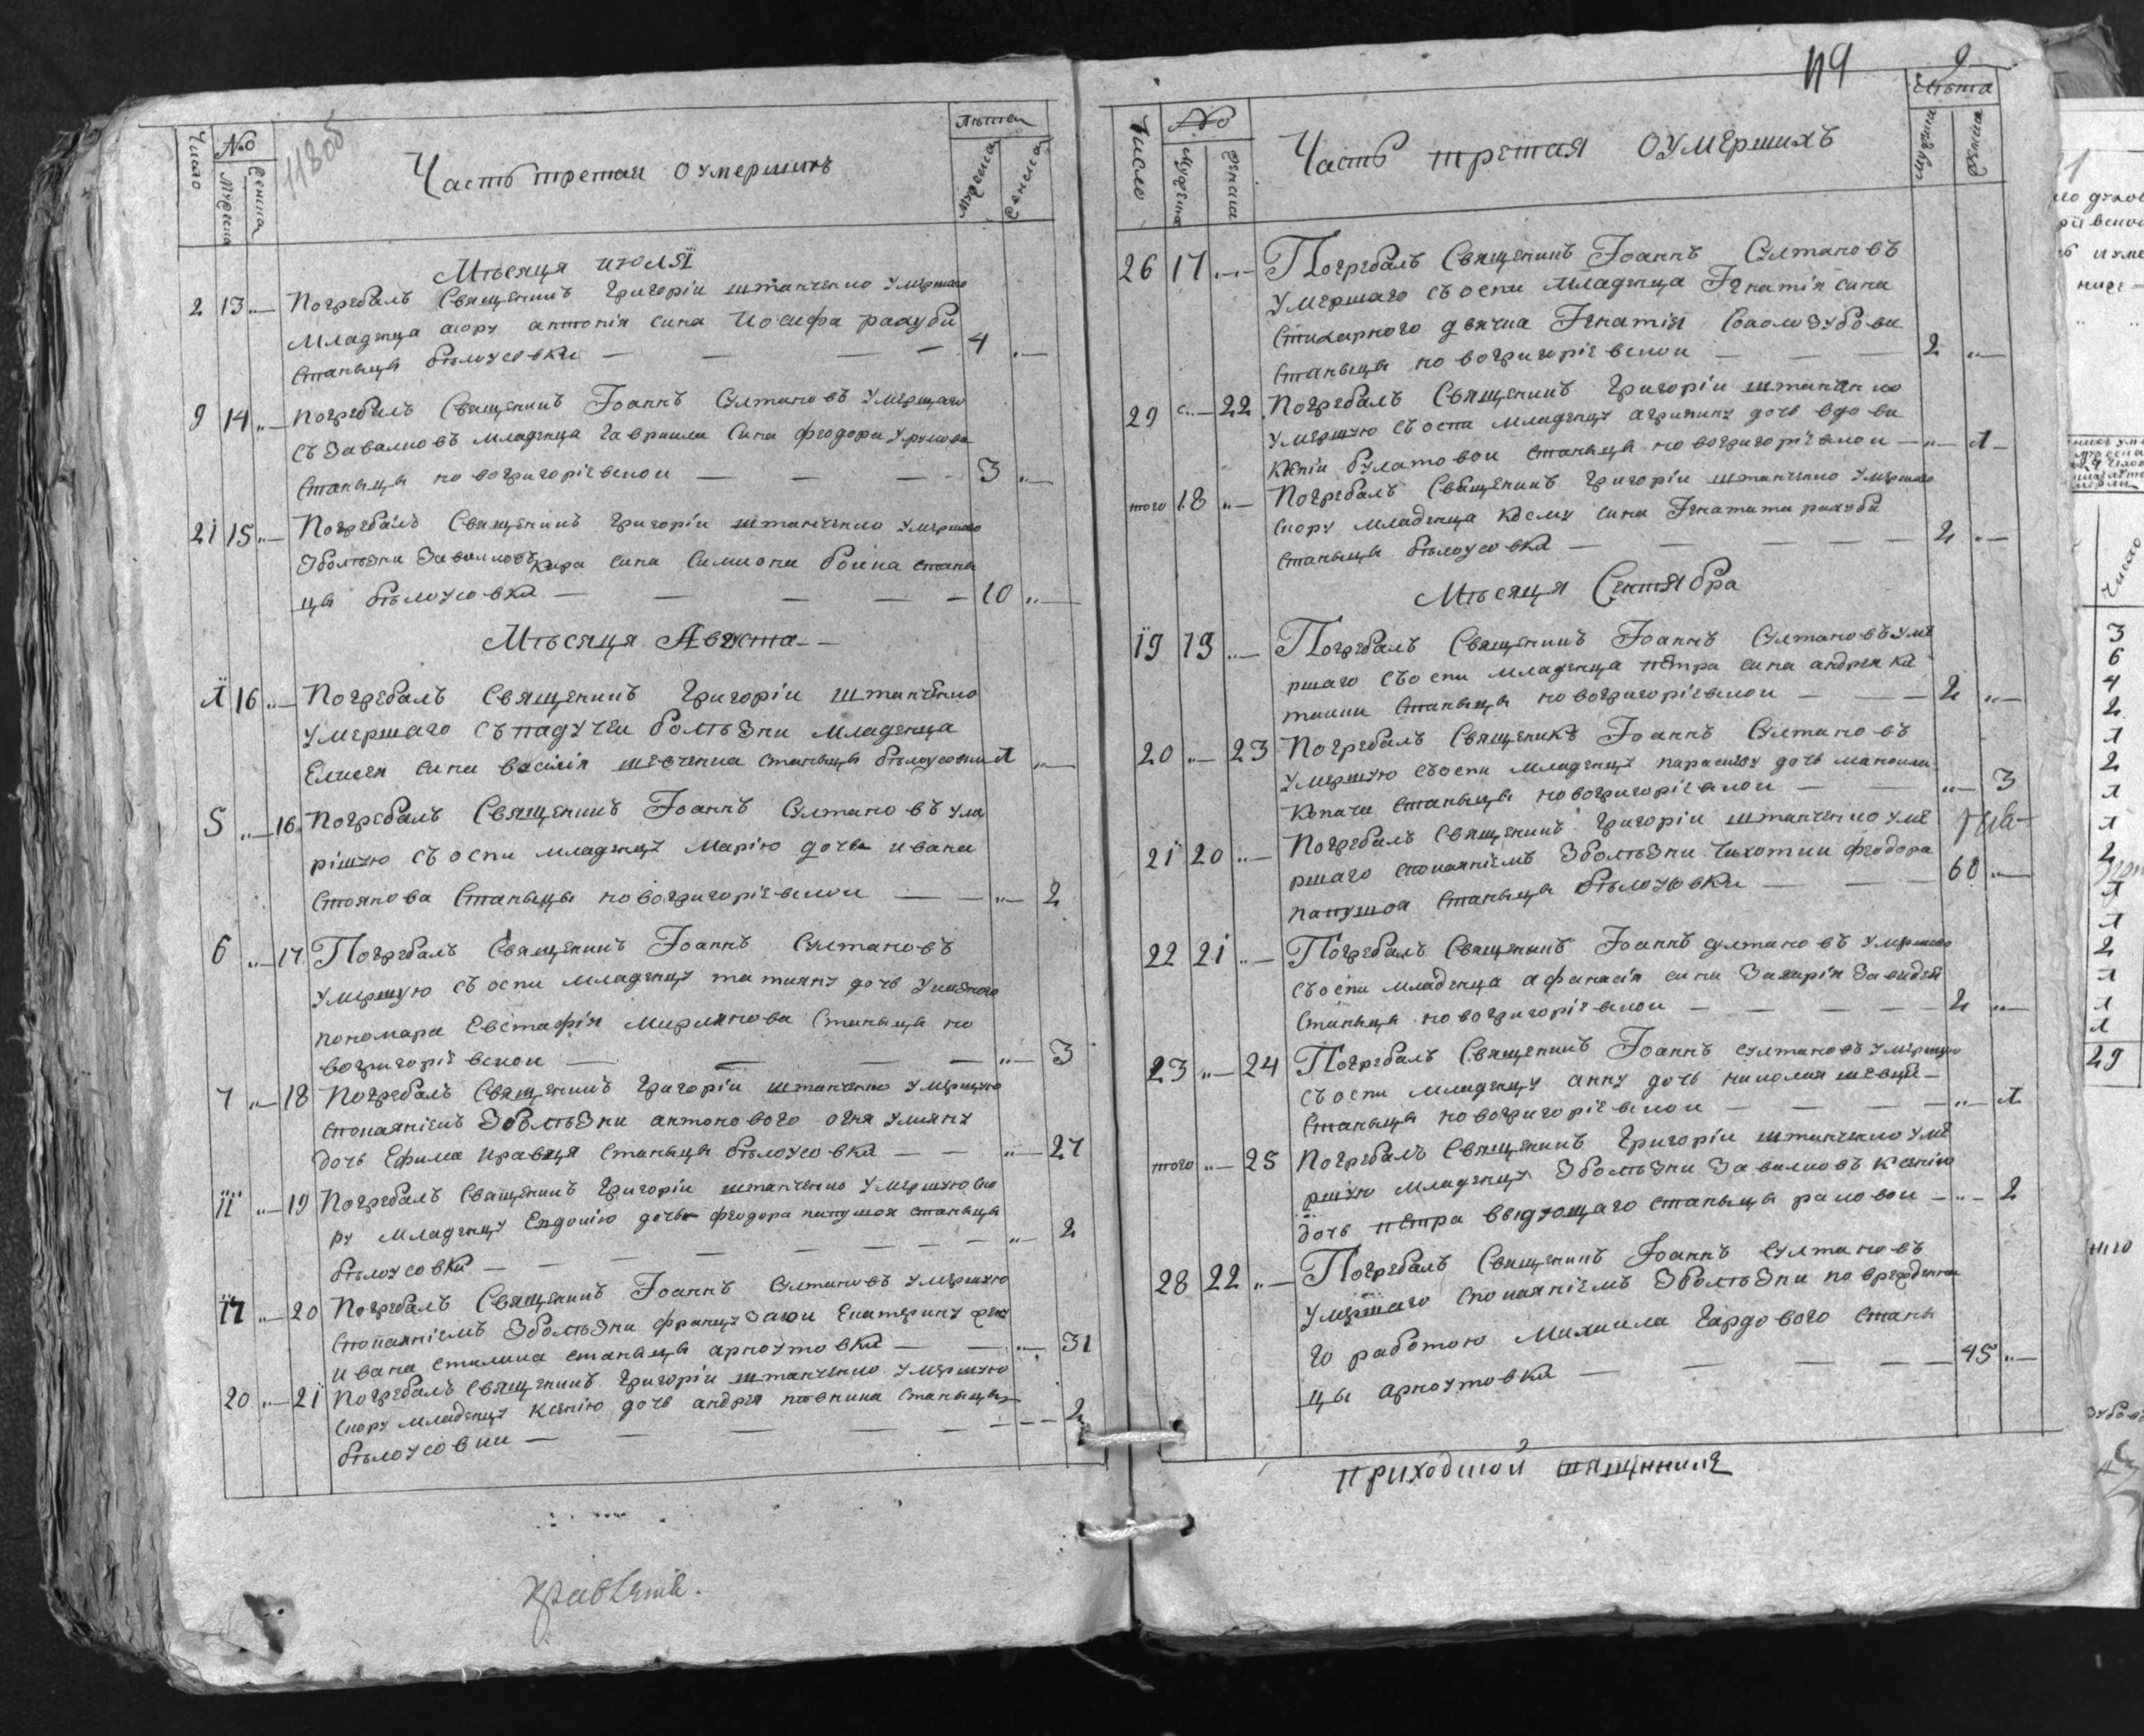 118об
Число
№
Мужеска
Женска
Часть третая о умершихъ
Лѣта
Мужеска
Женска
Мѣсяця июля
2 13 „ Погребалъ Священикъ Григоріи Штанченко умершаго
младенца скору антонія сина Иосифа рахуби
станыцы бѣлоусовки 4 „
9 14 „ Погребалъ Священикъ Іоаннъ Султановъ умершаго
съ завалковъ младенца гавриила сина феодора
станыцы новогригоріевскои 3 „
21 15 „ Погребалъ Священикъ Григоріи Штанченко умершаго
зболѣзни завалковъ Кира сина Симиона боика стани
цы бѣлоусовки 10 „
Мѣсяця Августа
1 16 „ Погребалъ Священикъ Григоріи Штанченко
умершаго съ падучеи болѣзни младенца
Елисея сина василія шевченка станыцы бѣлоусовки 1 „
5 „ 16 Погребалъ Священикъ Іоаннъ Султановъ уме
ршую съ оспи младенцу Марію дочь ивана
Стоянова Станыцы новогригоріевскои „ 2
6 „ 17 Погребалъ Священикъ Іоаннъ Султановъ
умершую съ оспи младенцу татияну дочь указного
пономара Евстафія Мирлянова Станыцы но
вогригоріевскои „ 3
7 „ 18 Погребалъ Священикъ Григоріи Штанченко умершую
спокаяніемъ зболѣзни антонового огня улияну
дочь Ефима кравця станыцы бѣлоусовки „ 27
11 „ 19 Погребалъ Священикъ Григоріи Штанченко умершую ско
ру младенцу Евдокію дочь феодора папушоя станыцы
бѣлоусовки „ 2
17 „ 20 Погребалъ Священикъ Іоаннъ Султановъ умершую
спокаяніемъ зболѣзни француззкои Екатерину жену
ивана сталика станыцы арноутовки „ 31
20 „ 21 Погребалъ Священикъ Григоріи Штанченко умершую
скору младенцу Ксенію дочь андрея пѣвника станыцы
бѣлоусовки 2
119
9
Число
№
Мужеска
Женска
Часть третая о умершихъ
Лѣта
Мужеска
Женска
26 17 „ Погребалъ Священикъ Іоаннъ Султановъ
умершаго съ оспи младенца Ігнатія сина
стихарного дячка Ігнатія Соколозубова
станыцы новогригоріевскои 2 „
29 „ 22 Погребалъ Священикъ Григоріи Штанченко
умершую съ оспи младенцу агрипину дочь вдови
Ксеніи булатовои станыцы новогригоріевскои „ 1
того 18 „ Погребалъ Священикъ Григоріи Штанченко умершаго
скору младенца Косму сина Ігната рахуби
станыцы бѣлоусовки 2 „
Мѣсяця Сентября
19 19 „ Погребалъ Священикъ Іоаннъ Султановъ уме
ршаго съ оспи младенца петра сина андрея ка
ташки станыцы новогригоріевскои 2 „
20 „ 23 Погребалъ Священикъ Іоаннъ Султановъ
умершую съ оспи младенцу параскеву дочь маноила
Копача станыцы новогригоріевскои „ 3
21 20 „ Погребалъ Священикъ Григоріи Штанченко уме
ршаго спокаяніемъ зболѣзни чихотки феодора
папушоя станыцы бѣлоусовки 60 „
22 21 „ Погребалъ Священикъ Іоаннъ султановъ умершаго
съ оспи младенца афанасія сина Захарія
станыцы новогригоріевскои 2 „
23 „ 24 Погребалъ Священикъ Іоаннъ султановъ умершую
съ оспи младенцу анну дочь николая шевця
станыцы новогригоріевскои „ 1
того „ 25 Погребалъ Священикъ Григоріи Штанченко уме
ршую младенцу зболѣзни завалковъ Ксенію
дочь петра видющаго станыцы раковои „ 2
28 22 „ Погребалъ Священикъ Іоаннъ Султановъ
умершаго спокаяніемъ зболѣзни поврежденна
го работою Михаила Гардового стани
цы арноутовки 45 „
приходскои
Число
3
6
4
2
1
2
1
1
2
1
1
2
1
1
1
29